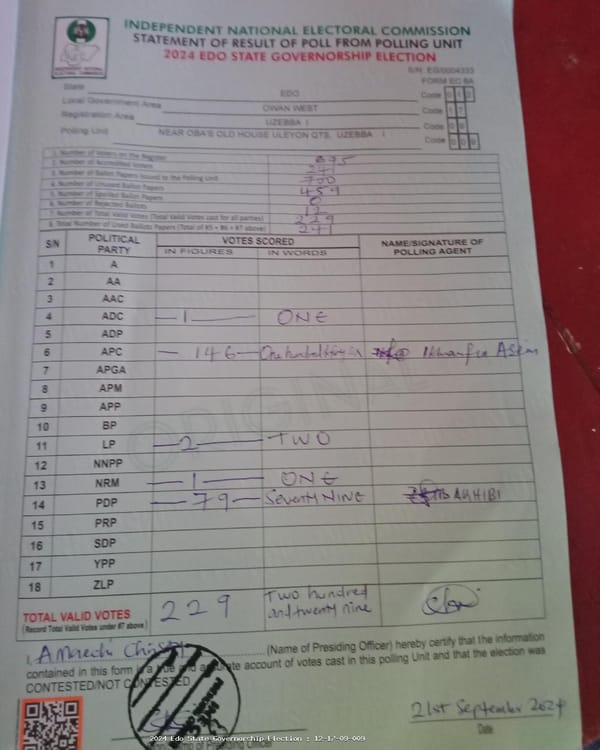 INDEPENDENT NATIONAL ELECTORAL COMMISSION
STATEMENT OF RESULT OF POLL FROM POLLING UNIT
2024 EDO STATE GOVERNORSHIP ELECTION
S/N: EG/0004333
FORM EC 8A
State EDO Code 0 1 2
Local Government Area OWAN WEST Code 1 7
Registration Area UZEBBA I Code 0 9
Polling Unit NEAR OBA'S OLD HOUSE ULEYON QTS, UZEBBA I Code 0 0 9
1. Number of Voters on the Register
2. Number of Accredited Voters 241
3. Number of Ballot Papers Issued to the Polling Unit 700
4. Number of Unused Ballot Papers 459
5. Number of Spoiled Ballot Papers 0
6. Number of Rejected Ballots 12
7. Number of Total Valid Votes (Total Valid Votes cast for all parties) 229
8. Total Number of Used Ballots Papers (Total of #5 + #6 + #7 above) 241
S/N POLITICAL PARTY VOTES SCORED NAME/SIGNATURE OF POLLING AGENT
IN FIGURES IN WORDS
1 A
2 AA
3 AAC
4 ADC 1 ONE
5 ADP
6 APC 146
7 APGA
8 APM
9 APP
10 BP
11 LP 2 TWO
12 NNPP
13 NRM 1 ONE
14 PDP 79 Seventy NINE
15 PRP
16 SDP
17 YPP
18 ZLP
TOTAL VALID VOTES 229 Two hundred and twenty nine
(Record Total Valid Votes under #7 above)
I, (Name of Presiding Officer) hereby certify that the information
contained in this form is a true and accurate account of votes cast in this polling Unit and that the election was
CONTESTED/NOT CONTESTED
21st September 2024
Date
of Presiding Officer
2024 Edo State Governorship Election : 12-17-09-009
ORIGINAL